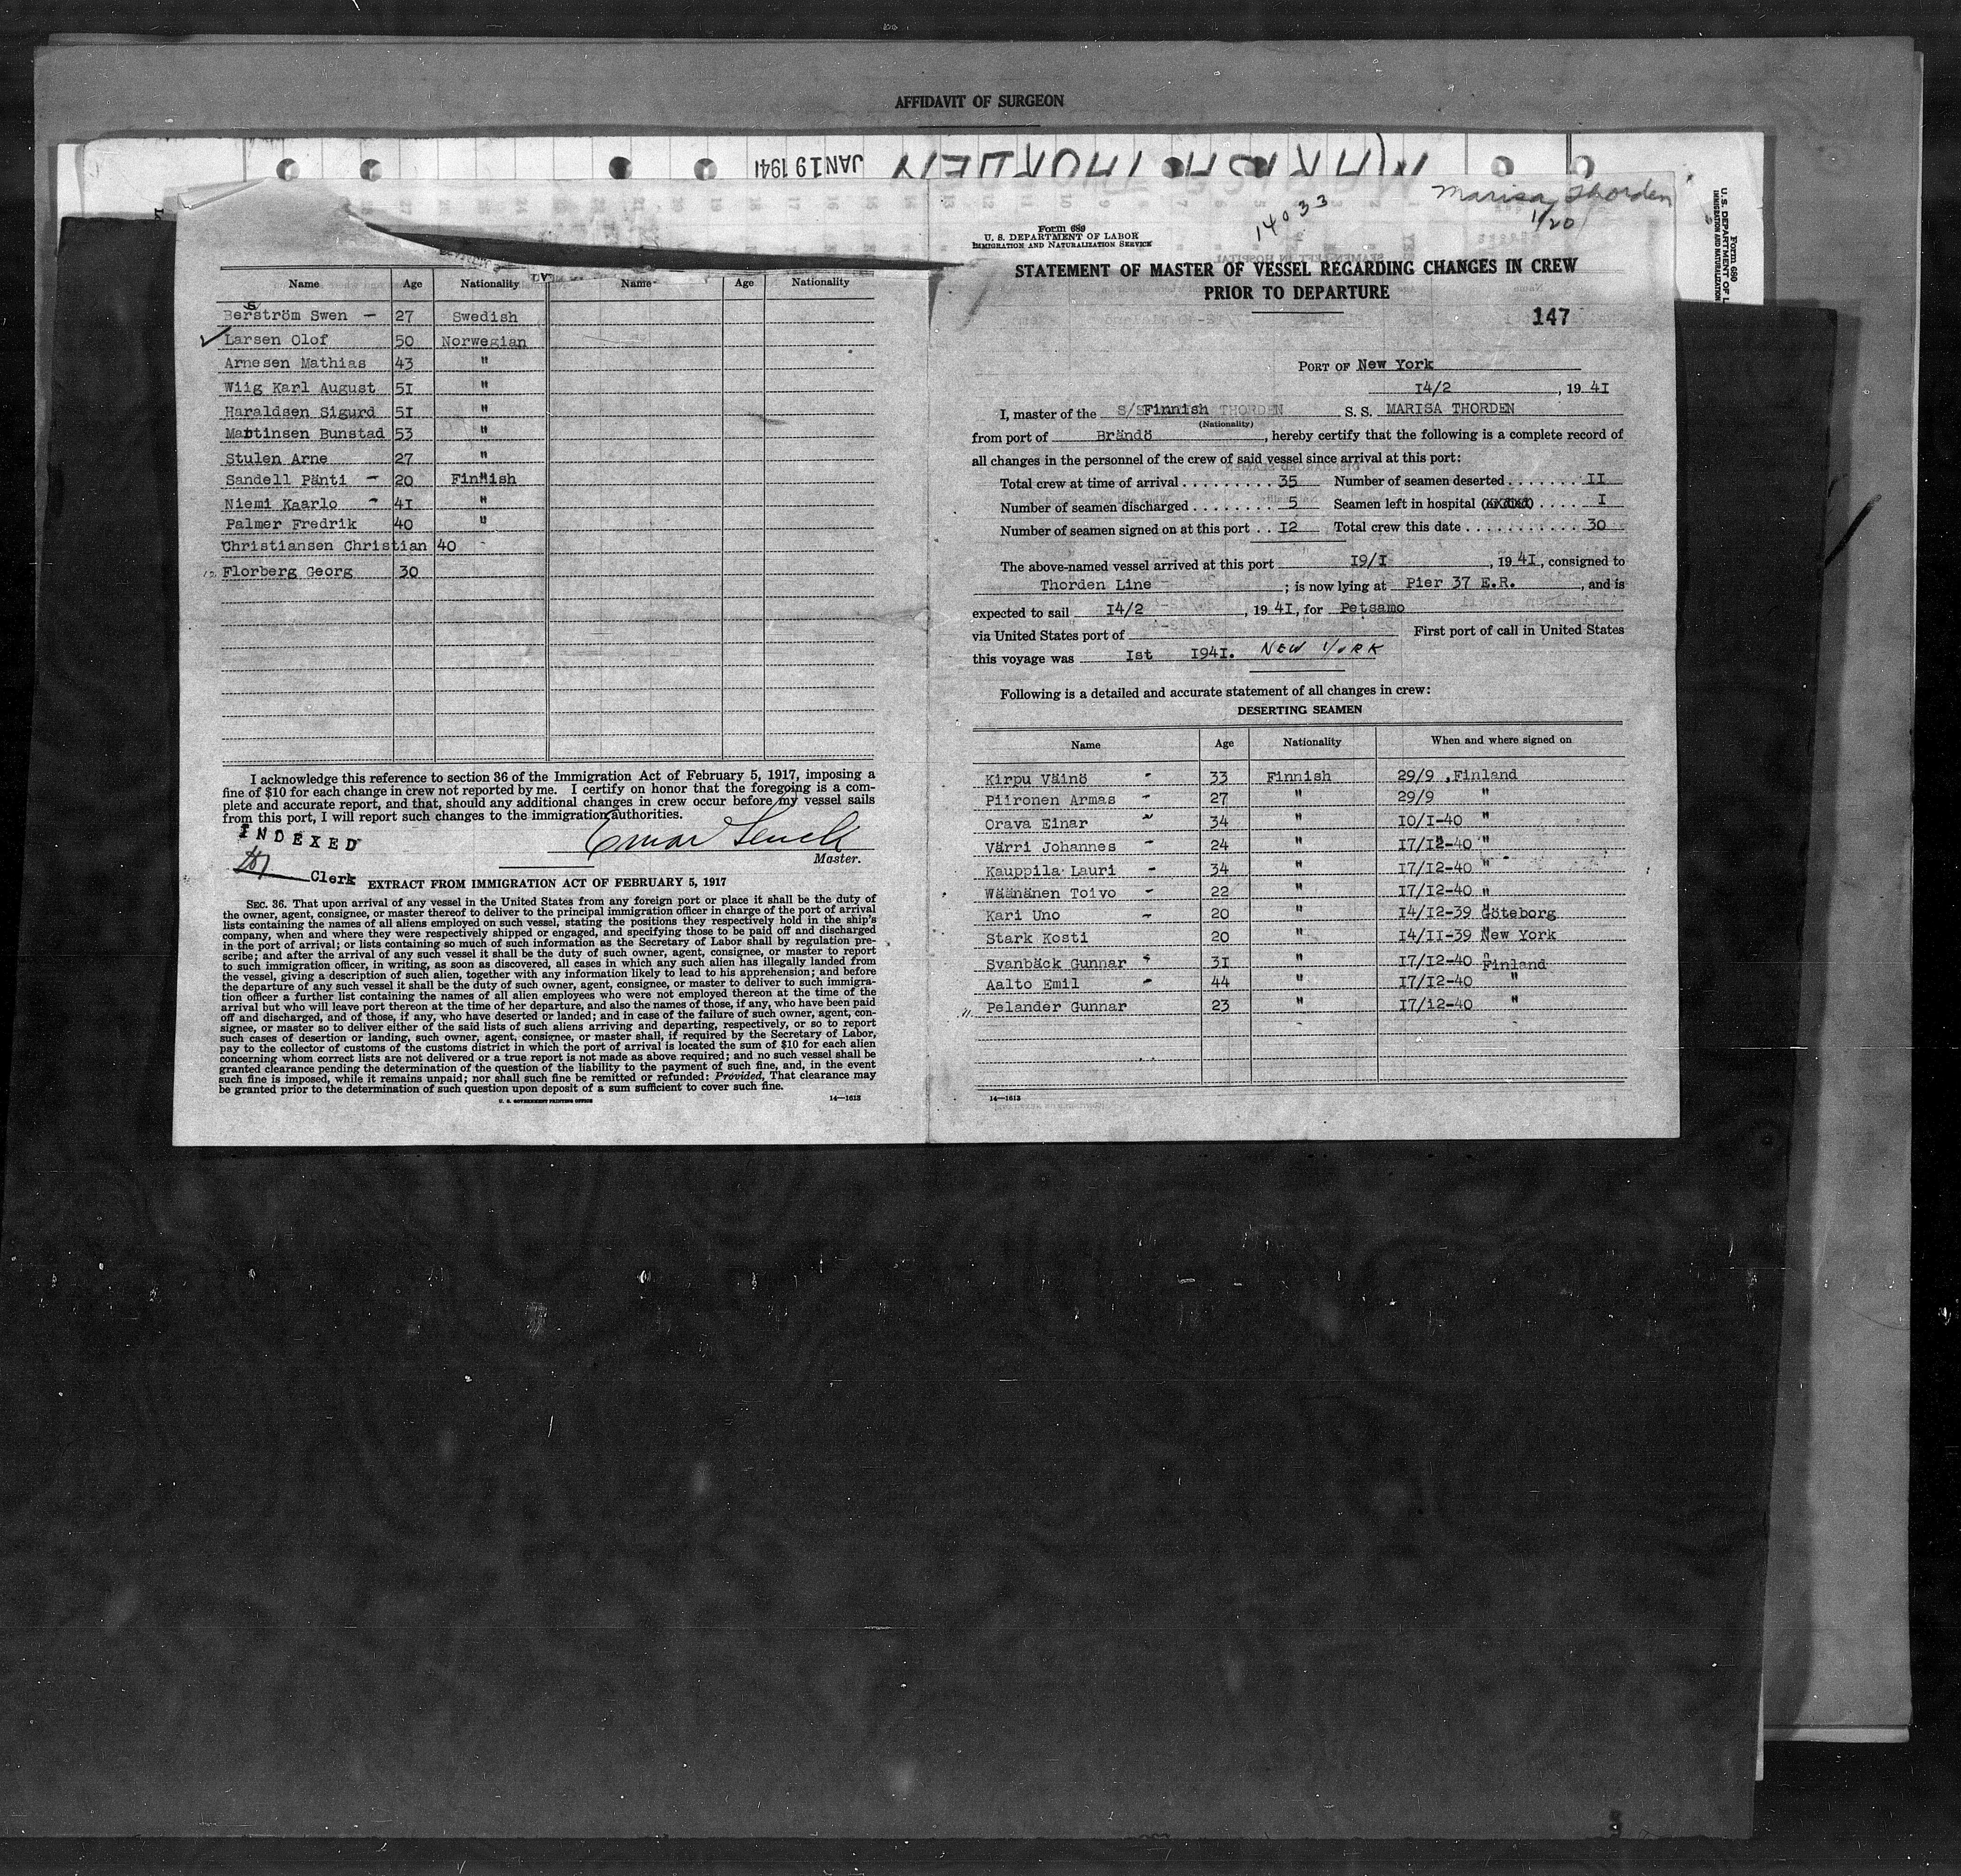 AFFIDAVIT OF SURGEON
JAN 19 1941
MARISA THORDEN
Name Age Nationality Name Age Nationality
Berström Swen - 27 Swedish
Larsen Olof 50 Norwegian
Arnesen Mathias 43 "
Wiig Karl August 51 "
Haraldsen Sigurd 51 "
Martinsen Bunstad 53 "
Stulen Arne 27 "
Sandell Pänti - 20 Finnish
Niemi Kaarlo - 41 "
Palmer Fredrik 40 "
Christiansen Christian 40
12. Florberg Georg 30
I acknowledge this reference to section 36 of the Immigration Act of February 5, 1917, imposing a
fine of $10 for each change in crew not reported by me. I certify on honor that the foregoing is a com-
plete and accurate report, and that, should any additional changes in crew occur before my vessel sails
from this port, I will report such changes to the immigration authorities.
INDEXED
Master.
Clerk
EXTRACT FROM IMMIGRATION ACT OF FEBRUARY 5, 1917
SEC. 36. That upon arrival of any vessel in the United States from any foreign port or place it shall be the duty of
the owner, agent, consignee, or master thereof to deliver to the principal immigration officer in charge of the port of arrival
lists containing the names of all aliens employed on such vessel, stating the positions they respectively hold in the ship's
company, when and where they were respectively shipped or engaged, and specifying those to be paid off and discharged
in the port of arrival; or lists containing so much of such information as the Secretary of Labor shall by regulation pre-
scribe; and after the arrival of any such vessel it shall be the duty of such owner, agent, consignee, or master to report
to such immigration officer, in writing, as soon as discovered, all cases in which any such alien has illegally landed from
the vessel, giving a description of such alien, together with any information likely to lead to his apprehension; and before
the departure of any such vessel it shall be the duty of such owner, agent, consignee, or master to deliver to such immigra-
tion officer a further list containing the names of all alien employees who were not employed thereon at the time of the
arrival but who will leave port thereon at the time of her departure, and also the names of those, if any, who have been paid
off and discharged, and of those, if any, who have deserted or landed; and in case of the failure of such owner, agent, con-
signee, or master so to deliver either of the said lists of such aliens arriving and departing, respectively, or so to report
such cases of desertion or landing, such owner, agent, consignee, or master shall, if required by the Secretary of Labor,
pay to the collector of customs of the customs district in which the port of arrival is located the sum of $10 for each alien
concerning whom correct lists are not delivered or a true report is not made as above required; and no such vessel shall be
granted clearance pending the determination of the question of the liability to the payment of such fine, and, in the event
such fine is imposed, while it remains unpaid; nor shall such fine be remitted or refunded: Provided, That clearance may
be granted prior to the determination of such question upon deposit of a sum sufficient to cover such fine.
U. S. GOVERNMENT PRINTING OFFICE 14—1613
Marisa Thorden
1/20
14033
Form 689
U. S. DEPARTMENT OF LABOR
IMMIGRATION AND NATURALIZATION SERVICE
STATEMENT OF MASTER OF VESSEL REGARDING CHANGES IN CREW
PRIOR TO DEPARTURE
147
PORT OF New York
14/2, 19 41
I, master of the Finnish S. S. MARISA THORDEN
(Nationality)
from port of Brändö, hereby certify that the following is a complete record of
all changes in the personnel of the crew of said vessel since arrival at this port:
Total crew at time of arrival . . . . . . . . . 35 Number of seamen deserted . . . . . . . 11
Number of seamen discharged . . . . . . . . 5 Seamen left in hospital . . . . 1
Number of seamen signed on at this port . . 12 Total crew this date . . . . . . . . . . 30
The above-named vessel arrived at this port 19/1, 19 41, consigned to
Thorden Line; is now lying at Pier 37 E.R., and is
expected to sail 14/2, 19 41, for Petsamo
via United States port of First port of call in United States
this voyage was 1st 1941. NEW YORK
Following is a detailed and accurate statement of all changes in crew:
DESERTING SEAMEN
Name Age Nationality When and where signed on
Kirpu Väinö - 33 Finnish 29/9 ,Finland
Piironen Armas - 27 " 29/9 "
Orava Einar - 34 " 10/1-40 "
Värri Johannes - 24 " 17/12-40 "
Kauppila Lauri - 34 " 17/12-40 "
Wäänänen Toivo - 22 " 17/12-40 "
Kari Uno - 20 " 14/12-39 Göteborg
Stark Kosti 20 " 14/11-39 New York
Svanbäck Gunnar + 31 " 17/12-40 Finland
Aalto Emil - 44 " 17/12-40 "
11. Pelander Gunnar 23 " 17/12-40 "
14—1613
Form 689
U. S. DEPARTMENT OF L
IMMIGRATION AND NATURALIZATION